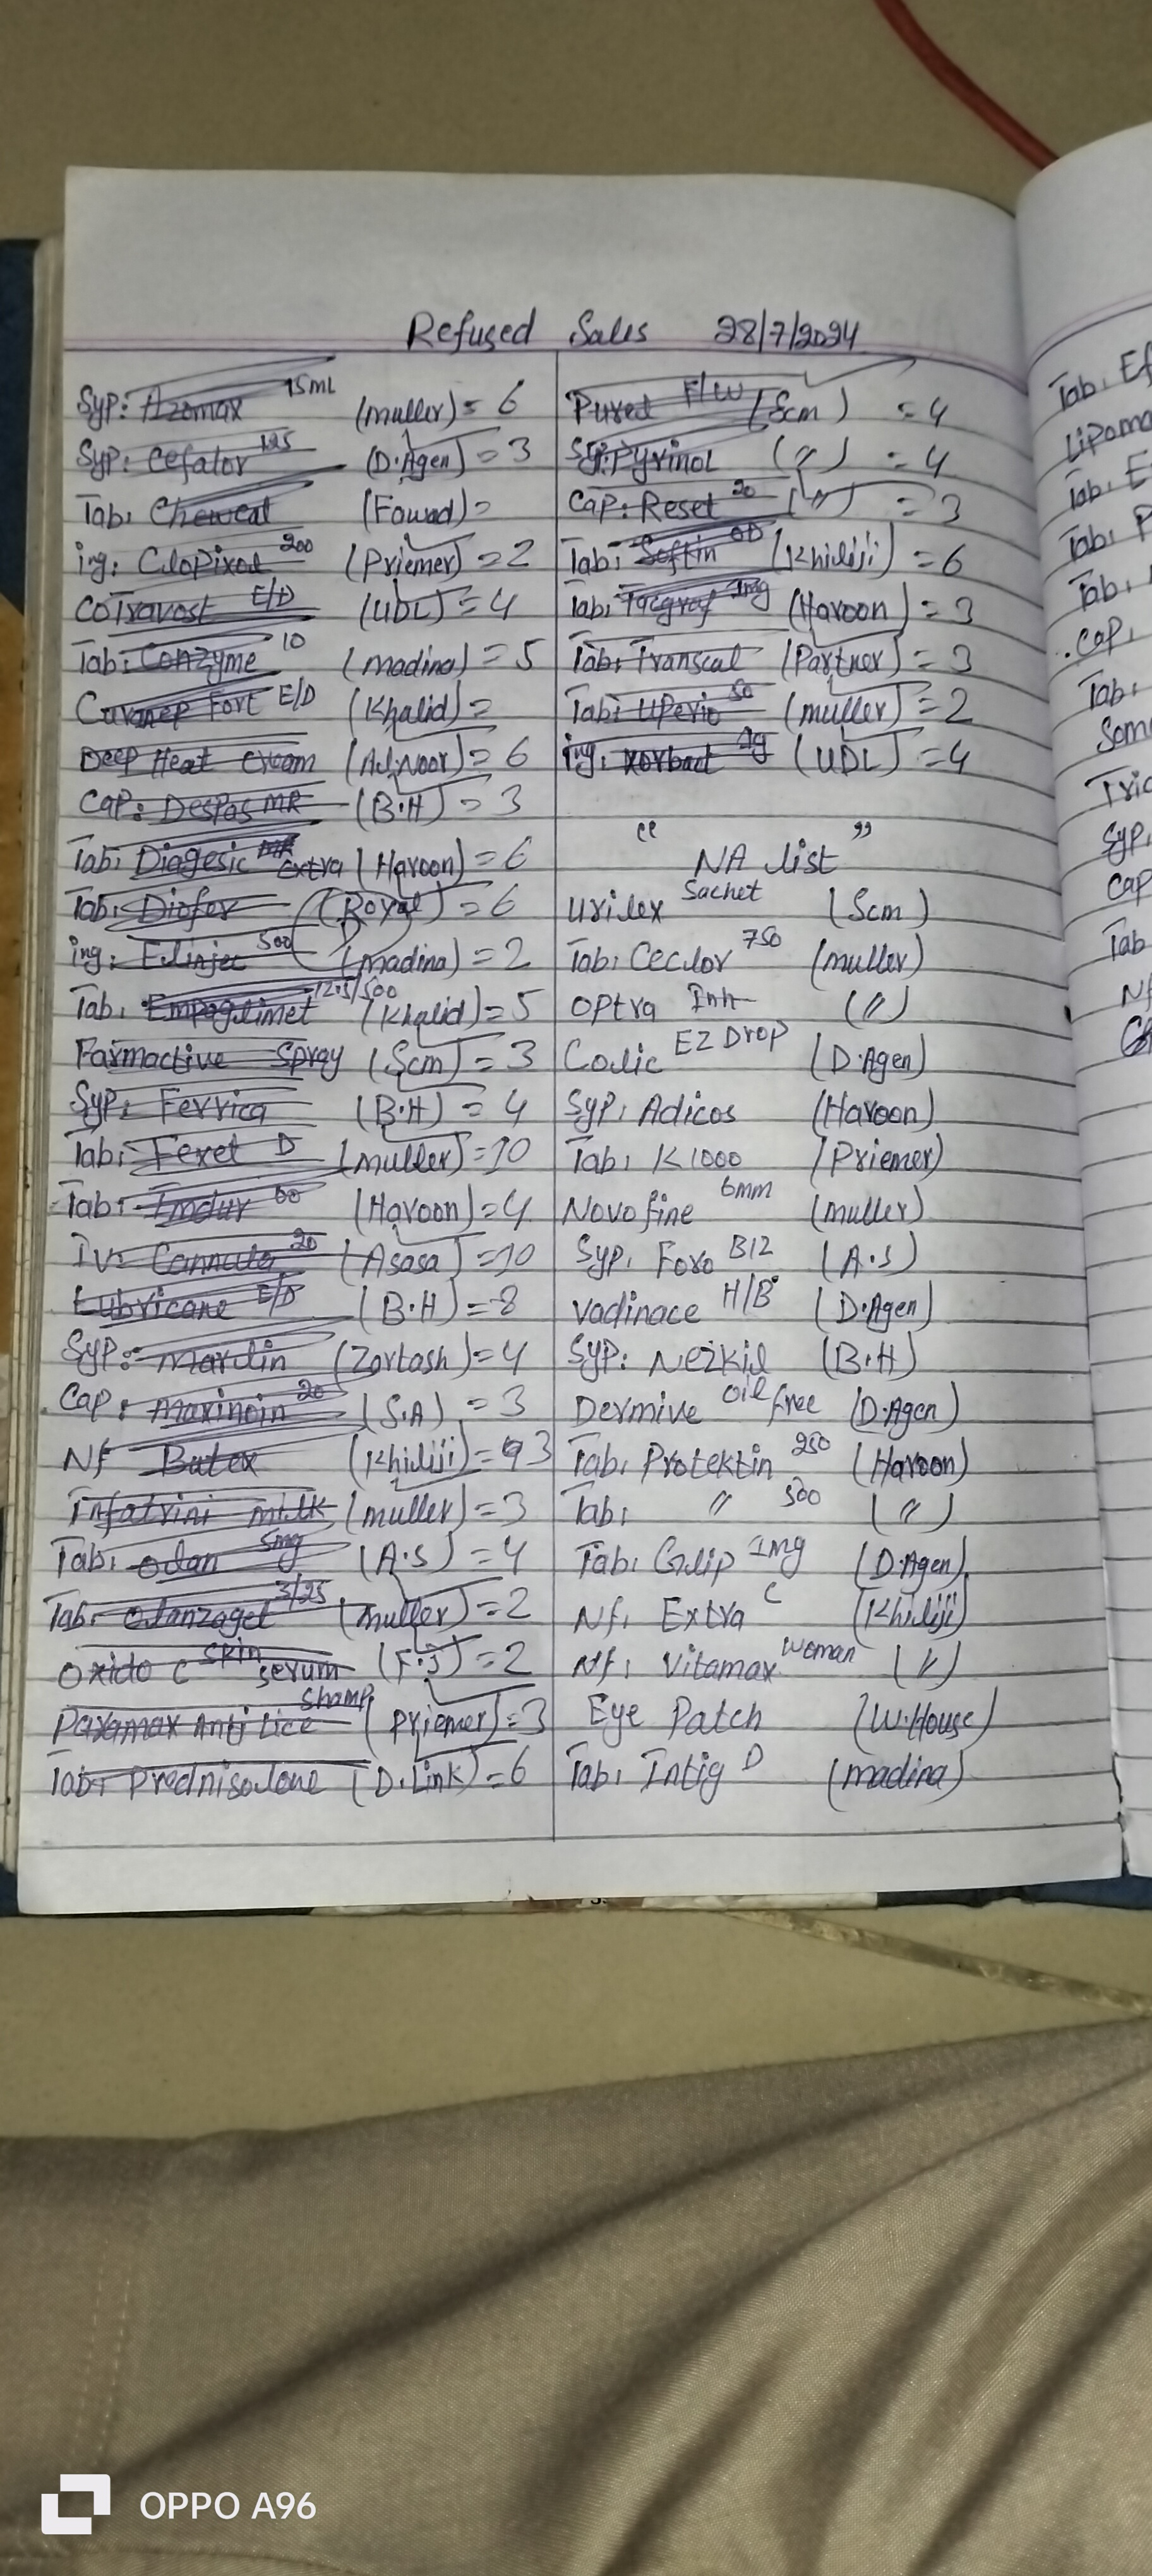 Refused Sales 28/7/2024
Syp: Azomax 15mL (muller) = 6
Syp: Cefalor 125 (D.Agen) = 3
Tab: Chewcal (Fawad) =
inj: Clopixol 200 (Priemer) = 2
CoTravost E/D (UDL) = 4
Tab: Conzyme 10 (madina) = 5
Curanep Fort E/D (Khalid) =
Deep Heat Cream (Al.Noor) = 6
Cap: Despas MR (B.H) = 3
Tab: Diagesic extra (Haroon) = 6
Tab: Diofer (Royal) = 6
inj: 500 (madina) = 2
Tab: Empaglimet 12.5/500 (Khalid) = 5
Farmactive Spray (Scm) = 3
Syp: Ferrica (B.H) = 4
Tab: Fexet D (muller) = 10
Tab: Imdur 60 (Haroon) = 4
IV: Cannula 20 (Asasa) = 10
Lubricane E/D (B.H) = 8
Syp: (Zortash) = 4
Cap: maxinoin 20 (S.A) = 3
Nf Butex (Khiliji) = 3
Infatrini milk (muller) = 3
Tab: olan 5mg (A.S) = 4
Tab: olanzaget 3/25 (muller) = 2
Oxido C skin serum (F.J) = 2
Paxamax Anti Lice Shamp (Priemer) = 3
Tab: Prednisolone (D.Link) = 6
Puret F/W (Scm) = 4
Pyrinol (〃) = 4
Cap: Reset 20 (〃) = 3
Tab: Softin OD (Khiliji) = 6
Tab: Tacgraf 1mg (Haroon) = 3
Tab: Transcal (Partner) = 3
Tab: Uperio 50 (muller) = 2
inj: xorbact 1g (UDL) = 4
“ NA list ”
Urilex Sachet (Scm)
Tab: Ceclor 750 (muller)
Optra Inh (〃)
Colic EZ Drop (D.Agen)
Syp: Adicos (Haroon)
Tab: K1000 (Priemer)
Novofine 6mm (muller)
Syp: Foro B12 (A.S)
Vadinace H/B (D.Agen)
Syp: Nezkil (B.H)
Dermive oil free (D.Agen)
Tab: Protektin 250 (Haroon)
Tab: 〃 500 (〃)
Tab: Glip 1mg (D.Agen)
Nf: Extra C (Khiliji)
Nf: Vitamax woman (〃)
Eye Patch (W.House)
Tab: Intig D (madina)
Tab: Ef
Lipoma
Tab: E
Tab: P
Tab:
Cap:
Tab:
Som
Tric
Syp:
Cap
Tab
Nf
OPPO A96